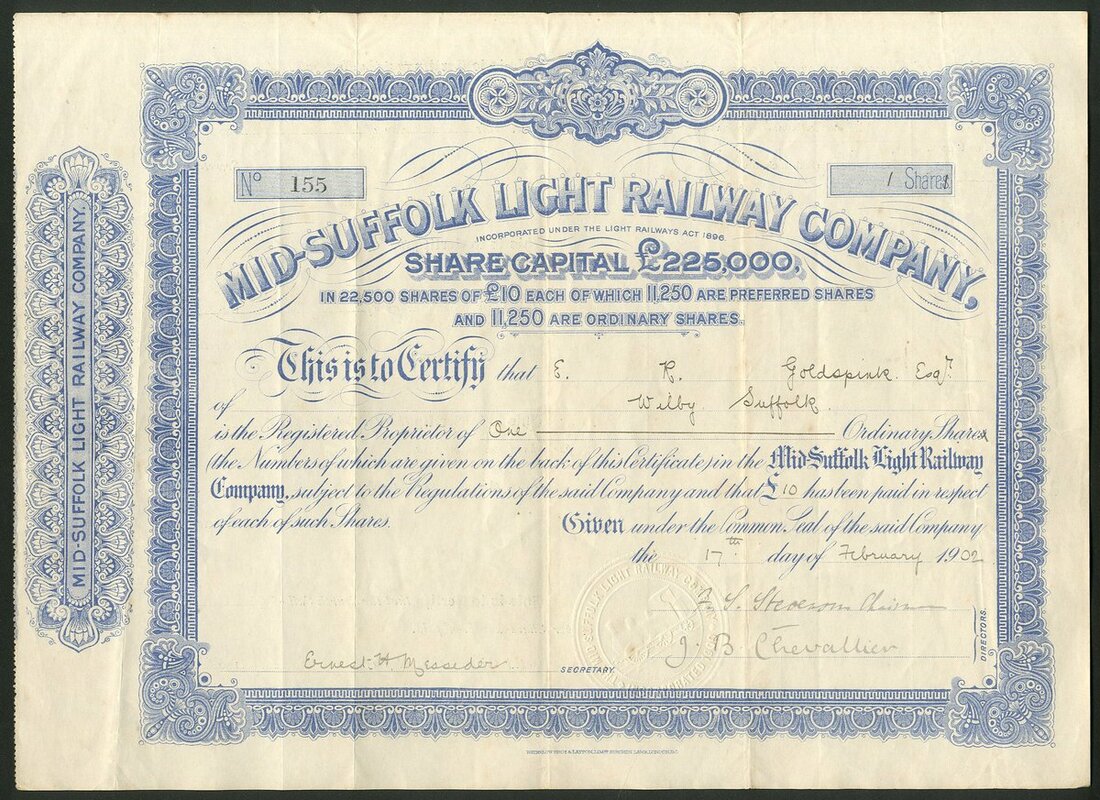 MID-SUFFOLK LIGHT RAILWAY COMPANY.
No 155
1 Shares
MID-SUFFOLK LIGHT RAILWAY COMPANY,
INCORPORATED UNDER THE LIGHT RAILWAYS ACT 1896.
SHARE CAPITAL £225,000,
IN 22,500 SHARES OF £10 EACH OF WHICH 11,250 ARE PREFERRED SHARES
AND 11,250 ARE ORDINARY SHARES.
This is to Certify that E. R. Goldspink Esqr.
of Wilby Suffolk
is the Registered Proprietor of One Ordinary Shares
(the Numbers of which are given on the back of this Certificate) in the Mid-Suffolk Light Railway
Company, subject to the Regulations of the said Company and that £10 has been paid in respect
of each of such Shares.
Given under the Common Seal of the said Company
the 17th day of February 1902
S. Stevenson Chairman
J. B. Chevallier
DIRECTORS.
Ernest H Messeder
SECRETARY.